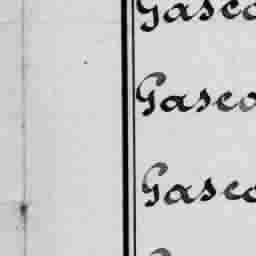 Gasco
Gasco
Gasco